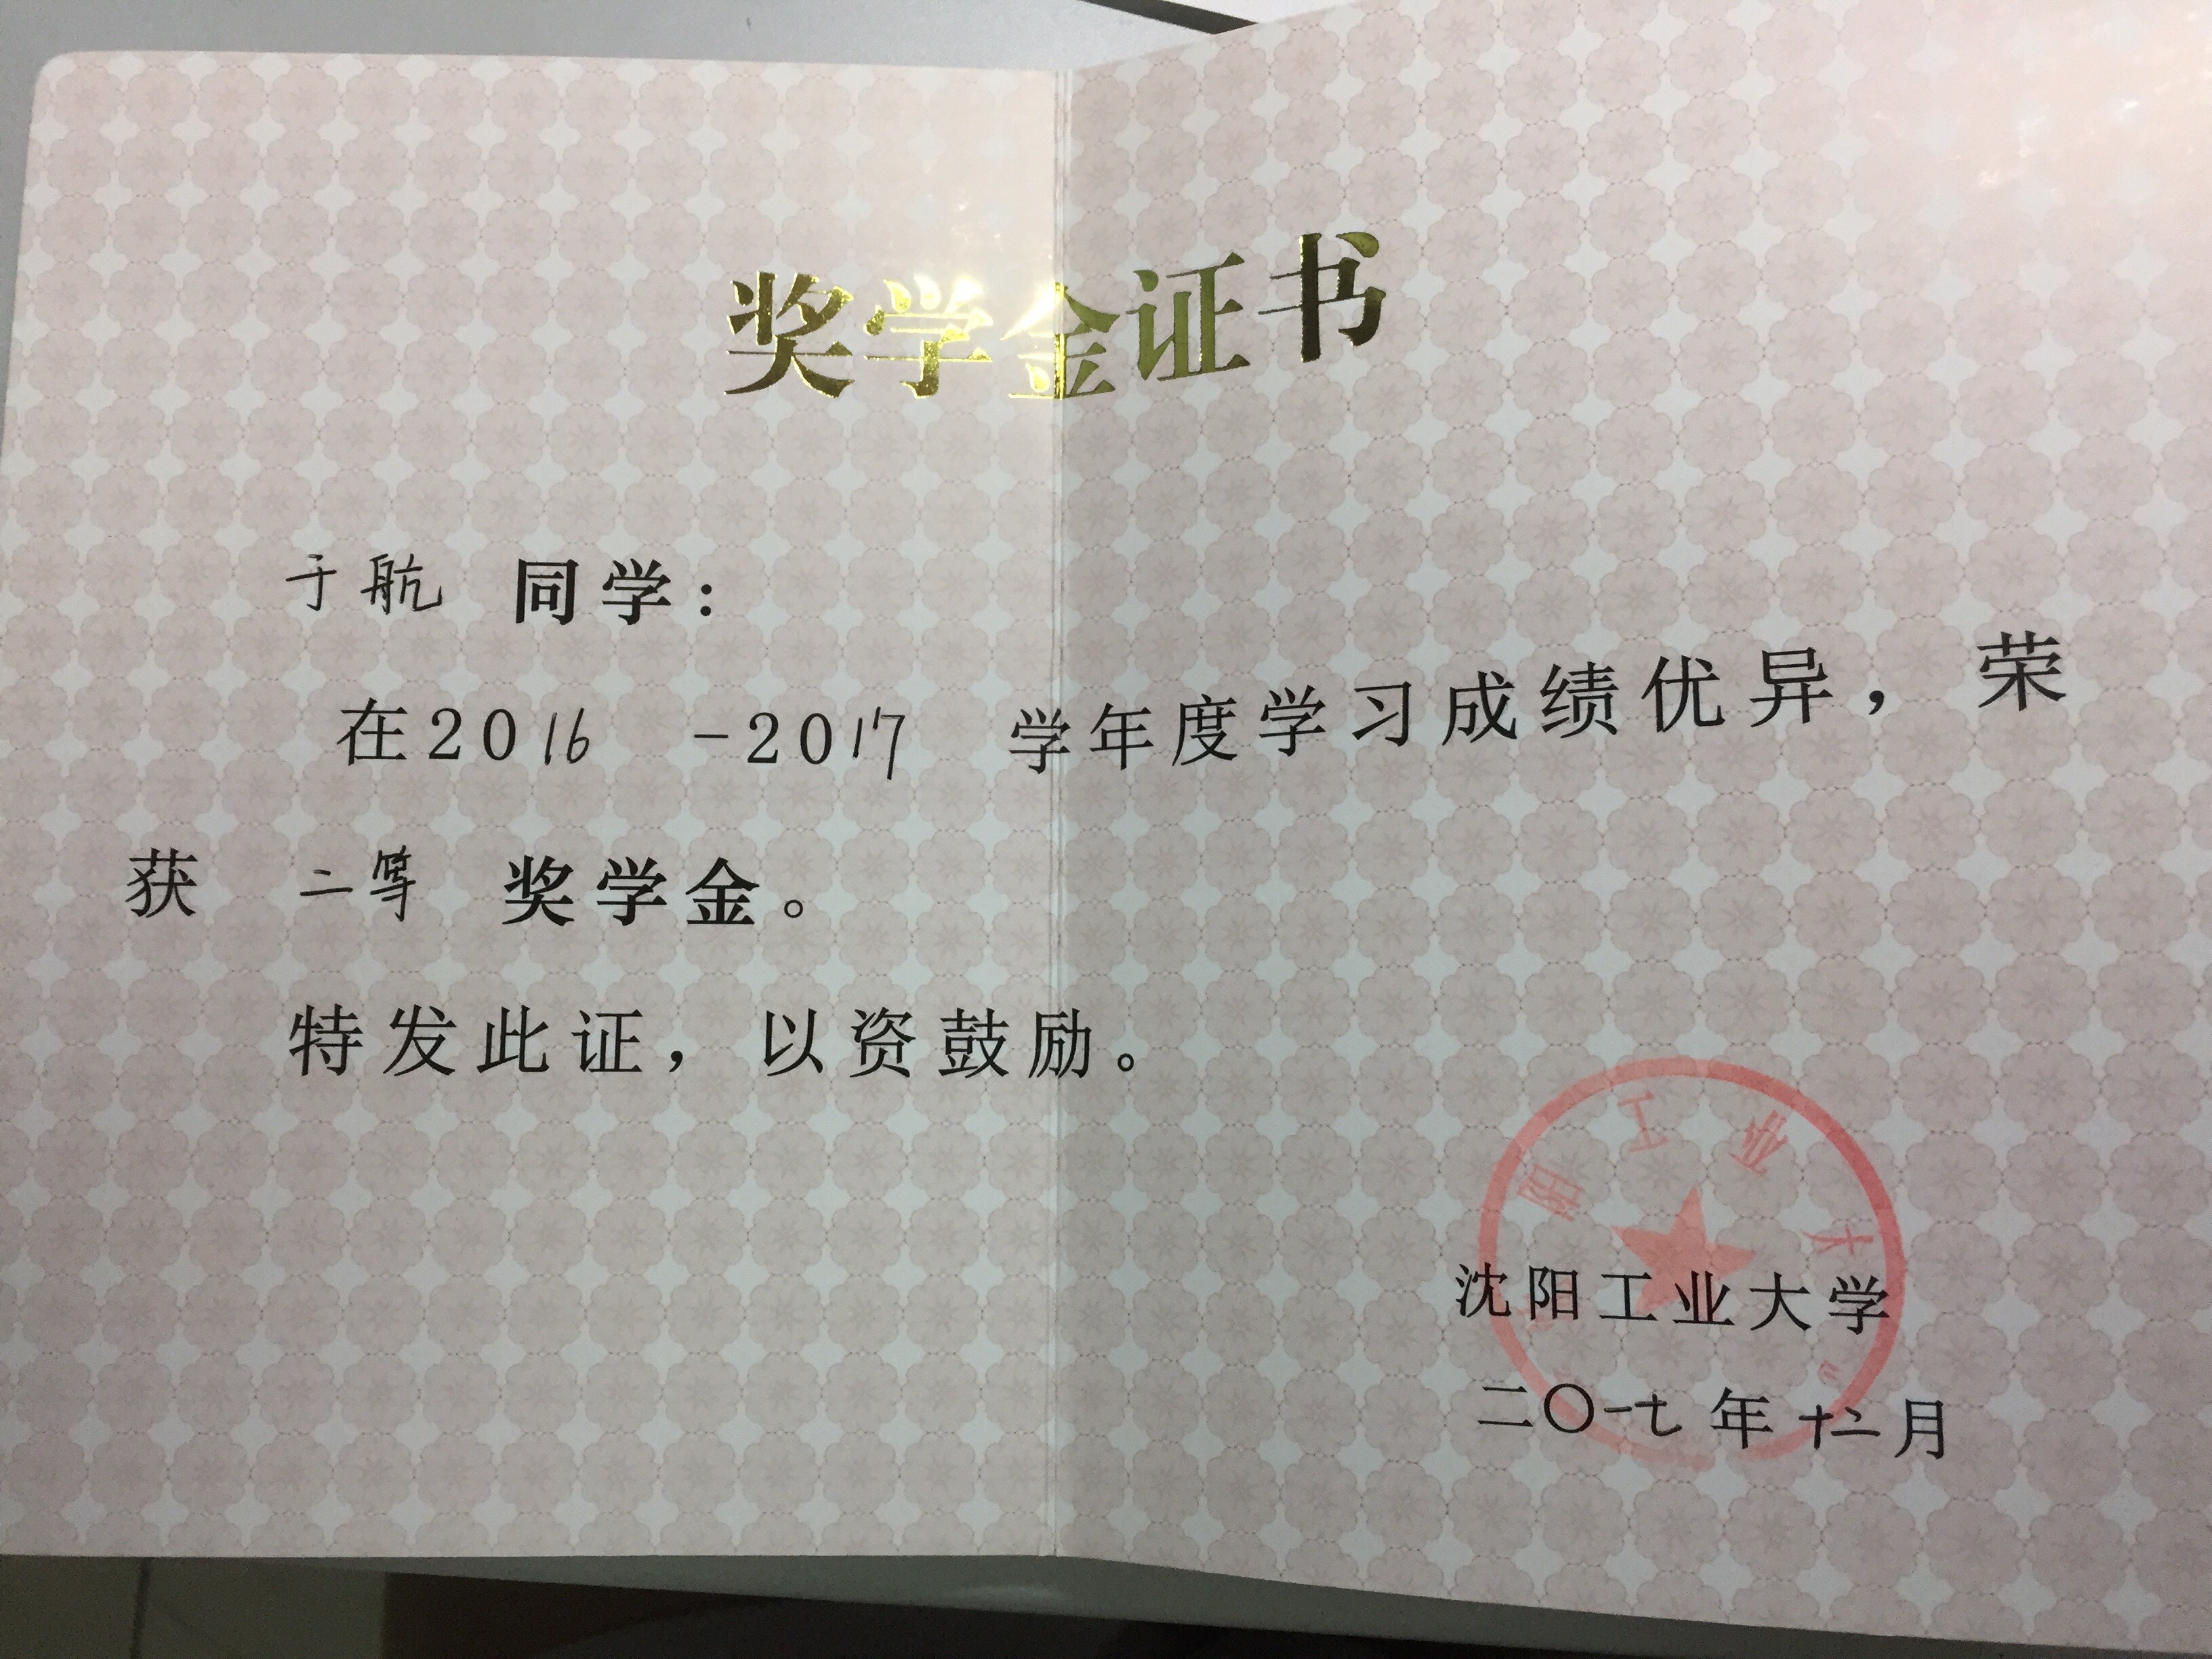 奖学金证书
于航 同学：
在2016 -2017 学年度学习成绩优异，荣
获 二等 奖学金。
特发此证，以资鼓励。
阳工业大
沈阳工业大学
二〇一七年十二月